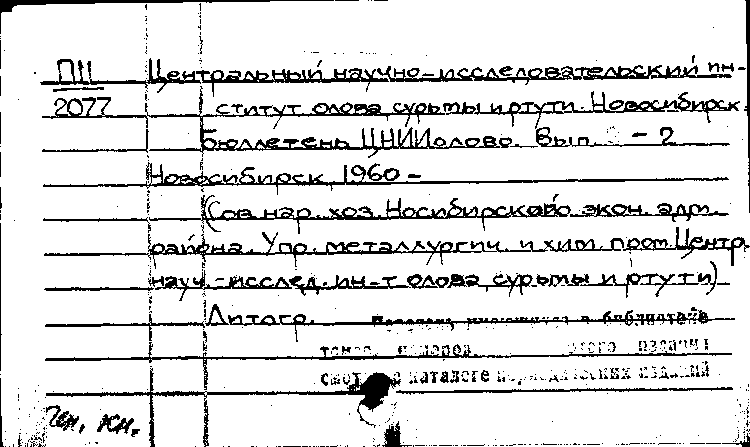 ПII Центральный научно-исследовательский ин-
2077 ститут олова, сурьмы и ртути. Новосибирск.
Бюллетень ЦНИИолово. Вып. - 2
Новосибирск, 1960 -
(Сов. нар. хоз. Носибирского экон. адм.
района. Упр. металлургич. и хим. пром. Центр.
науч.-исслед. ин-т олова, сурьмы и ртути)
Литогр. в библиотеке
номеров этого издания
каталоге периодических изданий
Ген. кн.